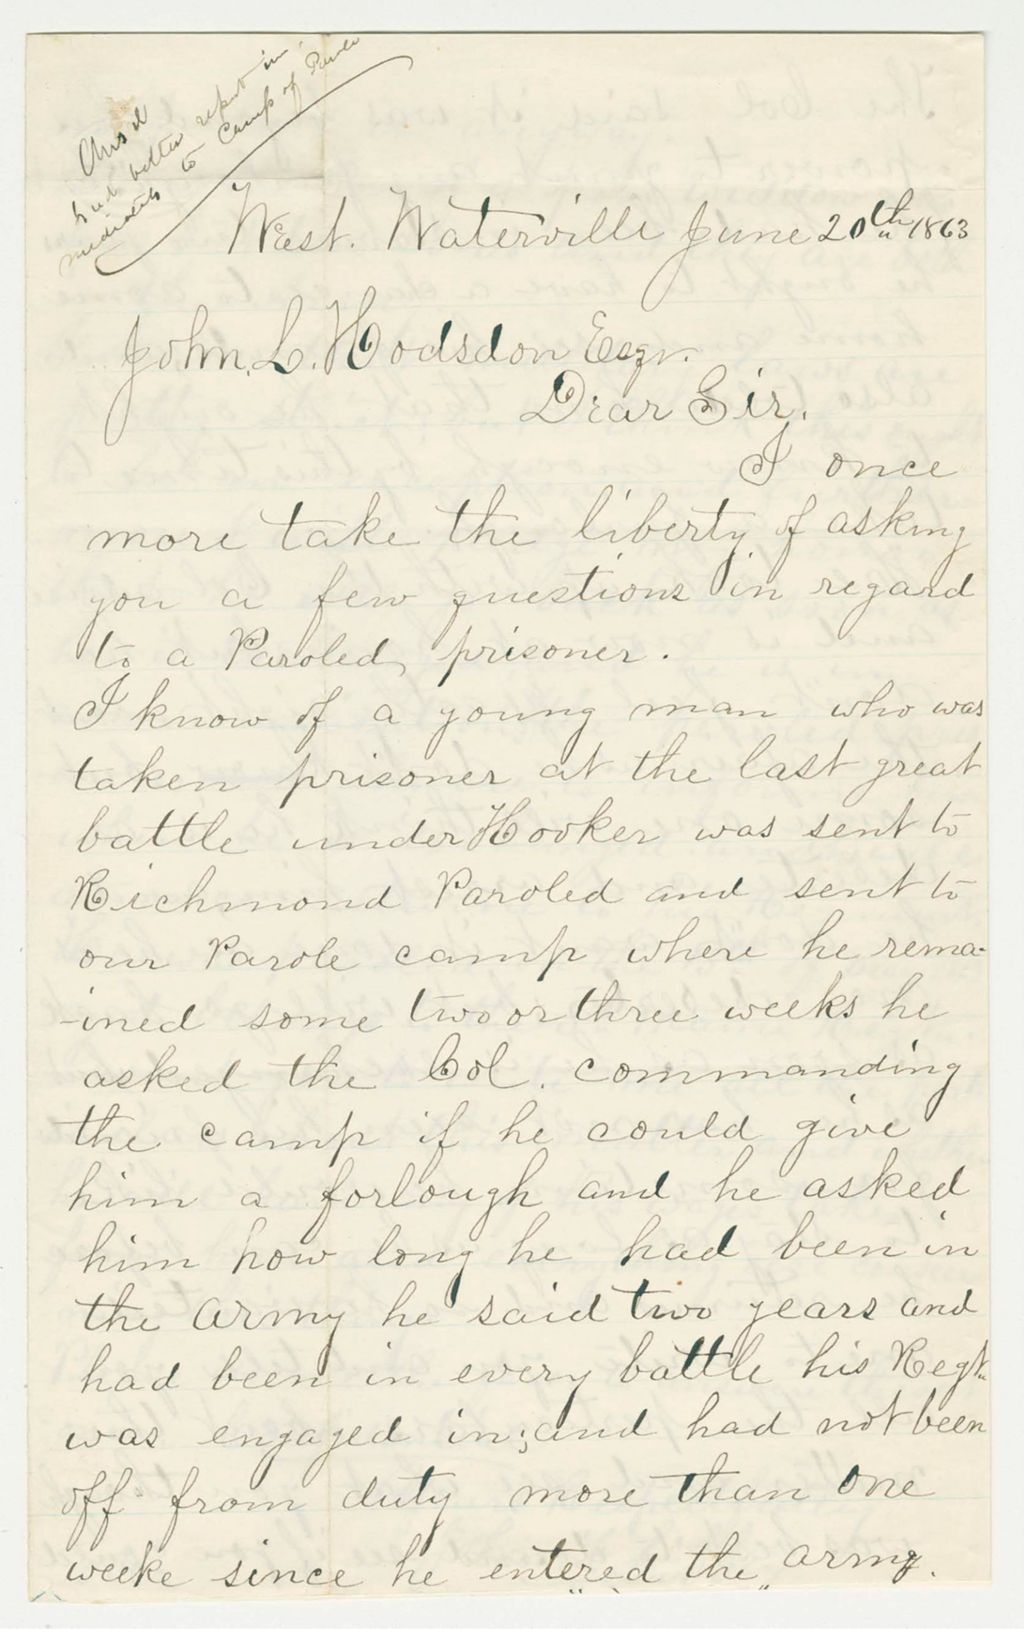 Ans'd
had better report im
mediately to Camp of Parole
West. Waterville June 20th 1863
John. L. Hodsdon Esqr.
Dear Sir.
I once
more take the liberty of asking
you a few questions in regard
to a Paroled prisoner.
I know of a young man who was
taken prisoner at the last great
battle under Hooker was sent to
Richmond Paroled and sent to
our Parole camp where he rema-
-ined some two or three weeks he
asked the Col. commanding
the camp if he could give
him a forlough and he asked
him how long he had been in
the army he said two years and
had been in every battle his Regt.
was engaged in; and had not been
off from duty more than one
weeke since he entered the army.